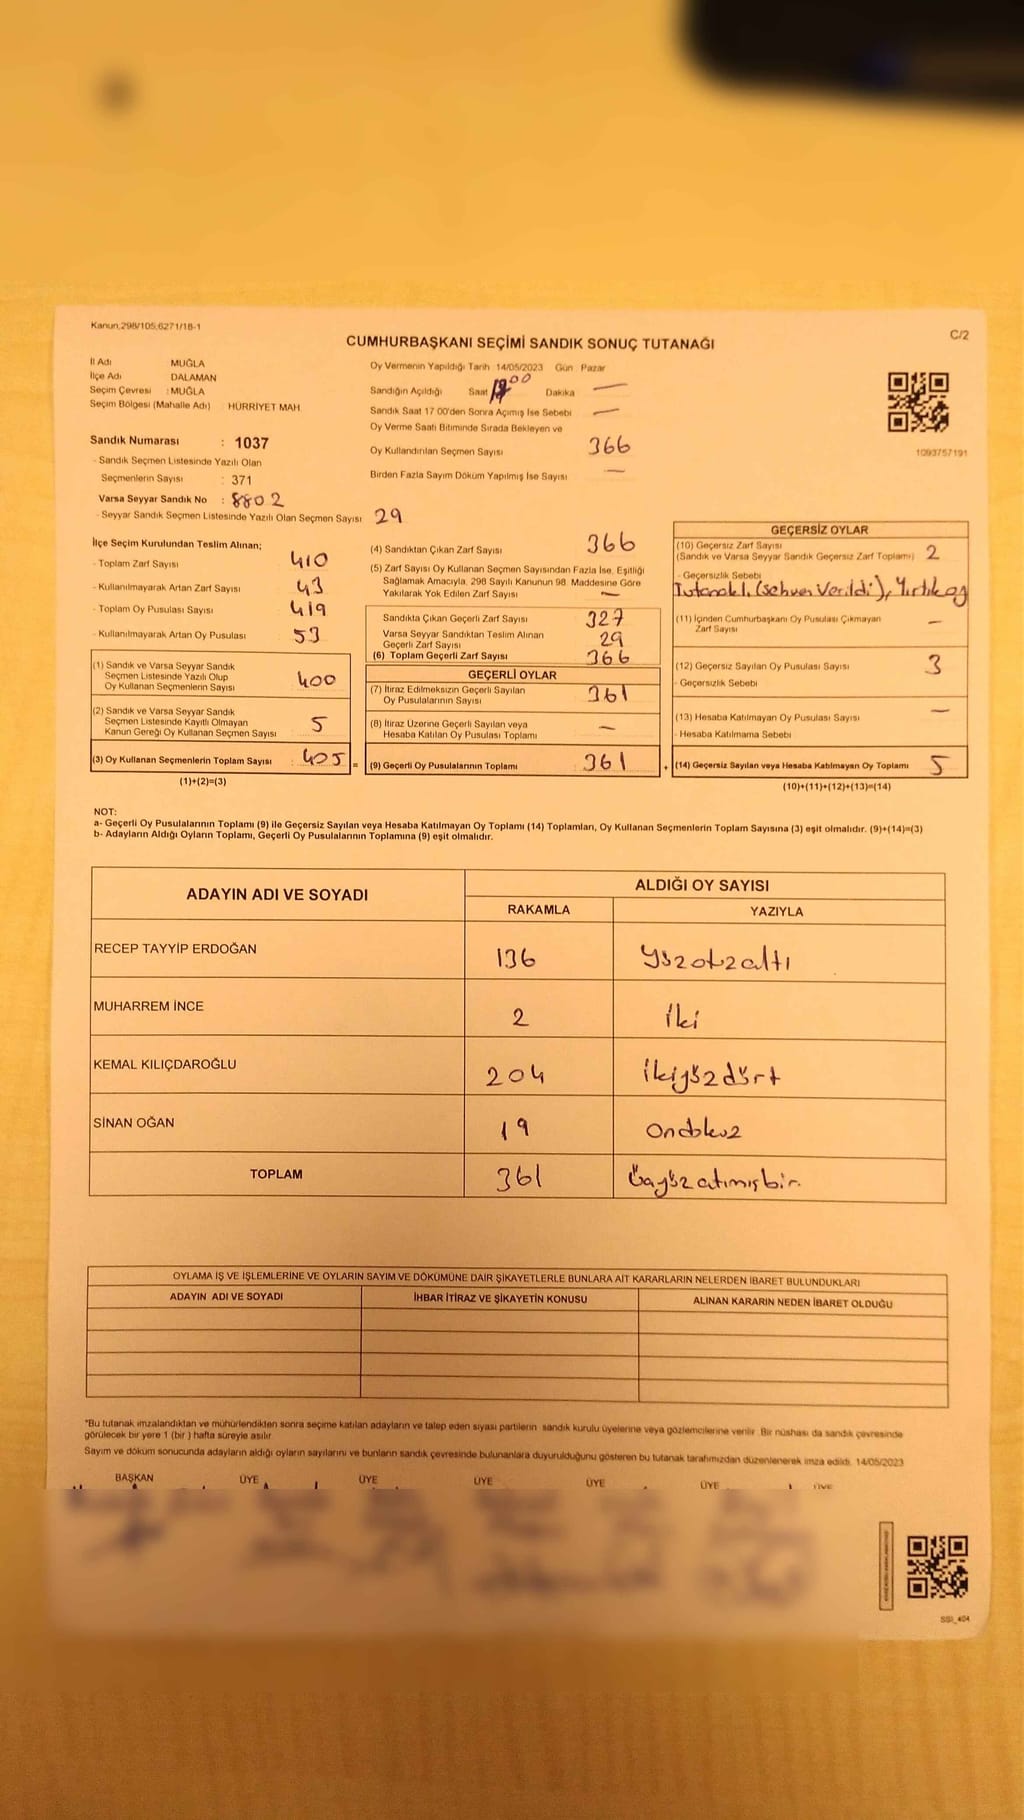 Kanun:298/105,6271/18-1
C/2
CUMHURBAŞKANI SEÇİMİ SANDIK SONUÇ TUTANAĞI
İl Adı MUĞLA
İlçe Adı DALAMAN
Seçim Çevresi : MUĞLA
Seçim Bölgesi (Mahalle Adı) HÜRRİYET MAH
Sandık Numarası : 1037
- Sandık Seçmen Listesinde Yazılı Olan
Seçmenlerin Sayısı : 371
Varsa Seyyar Sandık No : 8802
- Seyyar Sandık Seçmen Listesinde Yazılı Olan Seçmen Sayısı 29
Oy Vermenin Yapıldığı Tarih 14/05/2023 Gün Pazar
Sandığın Açıldığı Saat Dakika —
Sandık Saat 17 00'den Sonra Açımış İse Sebebi —
Oy Verme Saati Bitiminde Sırada Bekleyen ve
Oy Kullandırılan Seçmen Sayısı 366
Birden Fazla Sayım Döküm Yapılmış İse Sayısı —
1093757191
İlçe Seçim Kurulundan Teslim Alınan;
- Toplam Zarf Sayısı 410
- Kullanılmayarak Artan Zarf Sayısı 43
- Toplam Oy Pusulası Sayısı 419
- Kullanılmayarak Artan Oy Pusulası 53
(1) Sandık ve Varsa Seyyar Sandık
Seçmen Listesinde Yazılı Olup
Oy Kullanan Seçmenlerin Sayısı 400
(2) Sandık ve Varsa Seyyar Sandık
Seçmen Listesinde Kayıtlı Olmayan
Kanun Gereği Oy Kullanan Seçmen Sayısı 5
(3) Oy Kullanan Seçmenlerin Toplam Sayısı : 405 =
(1)+(2)=(3)
(4) Sandıktan Çıkan Zarf Sayısı 366
(5) Zarf Sayısı Oy Kullanan Seçmen Sayısından Fazla İse, Eşitliği
Sağlamak Amacıyla, 298 Sayılı Kanunun 98. Maddesine Göre
Yakılarak Yok Edilen Zarf Sayısı —
Sandıkta Çıkan Geçerli Zarf Sayısı 327
Varsa Seyyar Sandıktan Teslim Alınan
Geçerli Zarf Sayısı 29
(6) Toplam Geçerli Zarf Sayısı 366
GEÇERLİ OYLAR
(7) İtiraz Edilmeksizin Geçerli Sayılan
Oy Pusulalarının Sayısı 361
(8) İtiraz Üzerine Geçerli Sayılan veya
Hesaba Katılan Oy Pusulası Toplamı —
(9) Geçerli Oy Pusulalarının Toplamı 361 +
GEÇERSİZ OYLAR
(10) Geçersiz Zarf Sayısı
(Sandık ve Varsa Seyyar Sandık Geçersiz Zarf Toplamı) 2
- Geçersizlik Sebebi
Tutanaklı, (sehven verildi), Yırtık
(11) İçinden Cumhurbaşkanı Oy Pusulası Çıkmayan
Zarf Sayısı —
(12) Geçersiz Sayılan Oy Pusulası Sayısı 3
- Geçersizlik Sebebi
(13) Hesaba Katılmayan Oy Pusulası Sayısı —
- Hesaba Katılmama Sebebi
(14) Geçersiz Sayılan veya Hesaba Katılmayan Oy Toplamı 5
(10)+(11)+(12)+(13)=(14)
NOT:
a- Geçerli Oy Pusulalarının Toplamı (9) ile Geçersiz Sayılan veya Hesaba Katılmayan Oy Toplamı (14) Toplamları, Oy Kullanan Seçmenlerin Toplam Sayısına (3) eşit olmalıdır. (9)+(14)=(3)
b- Adayların Aldığı Oyların Toplamı, Geçerli Oy Pusulalarının Toplamına (9) eşit olmalıdır.
ADAYIN ADI VE SOYADI ALDIĞI OY SAYISI
RAKAMLA YAZIYLA
RECEP TAYYİP ERDOĞAN 136 Yüzotuzaltı
MUHARREM İNCE 2 İki
KEMAL KILIÇDAROĞLU 204 ikiyüzdört
SİNAN OĞAN 19 Ondokuz
TOPLAM 361 üçyüzatmışbir.
OYLAMA İŞ VE İŞLEMLERİNE VE OYLARIN SAYIM VE DÖKÜMÜNE DAİR ŞİKAYETLERLE BUNLARA AİT KARARLARIN NELERDEN İBARET BULUNDUKLARI
ADAYIN ADI VE SOYADI İHBAR İTİRAZ VE ŞİKAYETİN KONUSU ALINAN KARARIN NEDEN İBARET OLDUĞU
*Bu tutanak imzalandıktan ve mühürlendikten sonra seçime katılan adayların ve talep eden siyasi partilerin sandık kurulu üyelerine veya gözlemcilerine verilir. Bir nüshası da sandık çevresinde
görülecek bir yere 1 (bir) hafta süreyle asılır
Sayım ve döküm sonucunda adayların aldığı oyların sayılarını ve bunların sandık çevresinde bulunanlara duyurulduğunu gösteren bu tutanak tarafımızdan düzenlenerek imza edildi. 14/05/2023
BAŞKAN ÜYE ÜYE ÜYE ÜYE ÜYE ÜYE
SSI_404